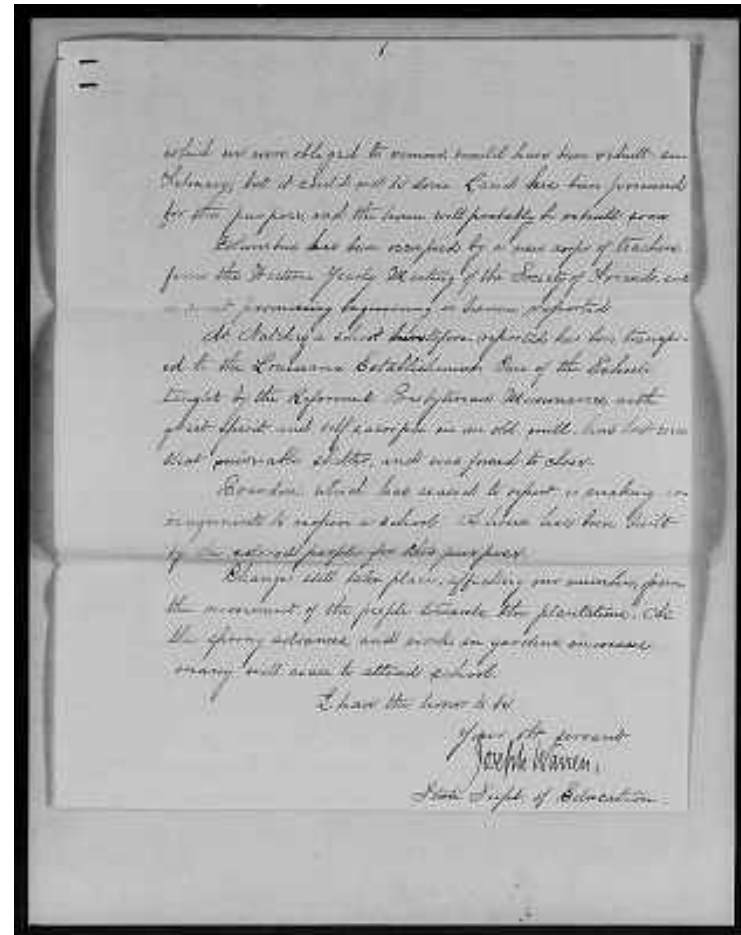 which we were obliged to remove, would have been rebuilt in
February, but it could not be done. Land has been procured
for this purpose, and the house will probably be rebuilt soon
Columbus has been occupied by a new corps of teachers
from the Western Yearly Meeting of the Society of Friends, and
a most promising beginning is reported
At Natchez a school heretofore reported has been transfer-
ed to the Louisiana Establishment. One of the Schools
taught by the Reformed Presbyterian Missionaries, with
great spirit and self sacrifice in an old mill, has lost even
that miserable shelter, and was forced to close.
Brandon which has ceased to report is making ar-
rangements to reopen a school. A house has been built
by the colored people for this purpose.
Changes will take place, affecting our numbers, from
the movement of the people towards the plantations. As
the spring advances and work in gardens increases
many will cease to attend school.
I have the honor to be
Your obt servant
Joseph Warren,
State Supt. of Education.